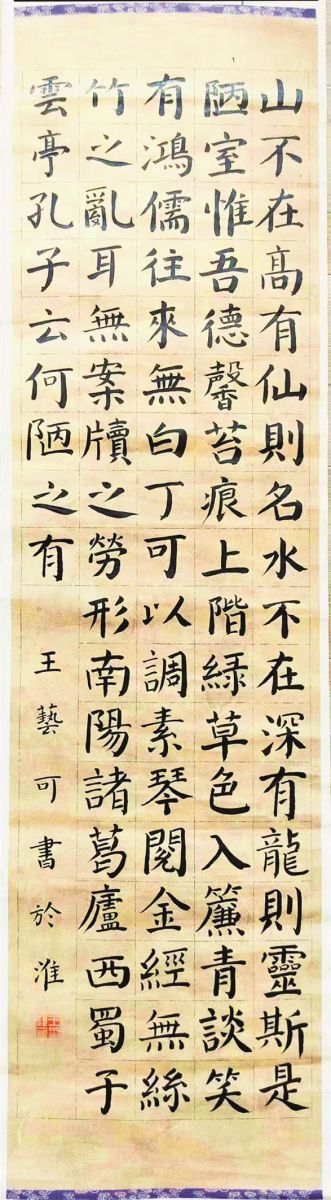 山不在高有仙則名水不在深有龍則靈斯是
陋室惟吾德馨苔痕上階緑草色入簾青談笑
有鴻儒往來無白丁可以調素琴閱金經無絲
竹之亂耳無案牘之勞形南陽諸葛廬西蜀子
雲亭孔子云何陋之有
王藝可書於淮